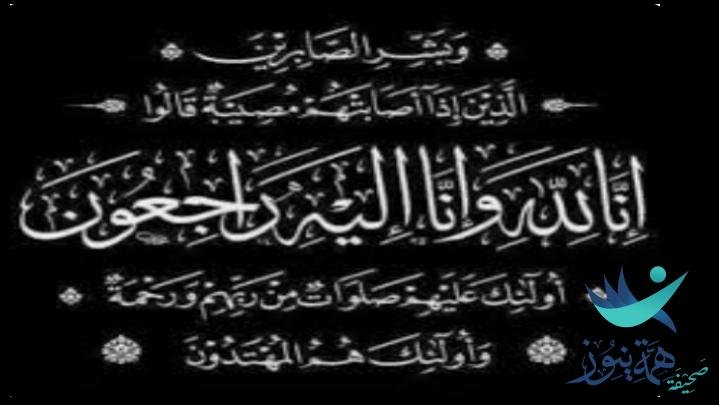 وَبَشِّرِ الصَّابِرِيْنَ
الَّذِيْنَ إِذَآ أَصَابَتْهُمْ مُصِيْبَةٌ قَالُوا
إِنَّا لِلّٰهِ وَإِنَّا إِلَيْهِ رَاجِعُونَ
أُولَٰئِكَ عَلَيْهِمْ صَلَوَاتٌ مِنْ رَبِّهِمْ وَرَحْمَةٌ
وَأُولَٰئِكَ هُمُ الْمُهْتَدُوْنَ
صَحِيْفَة
همة نيوز